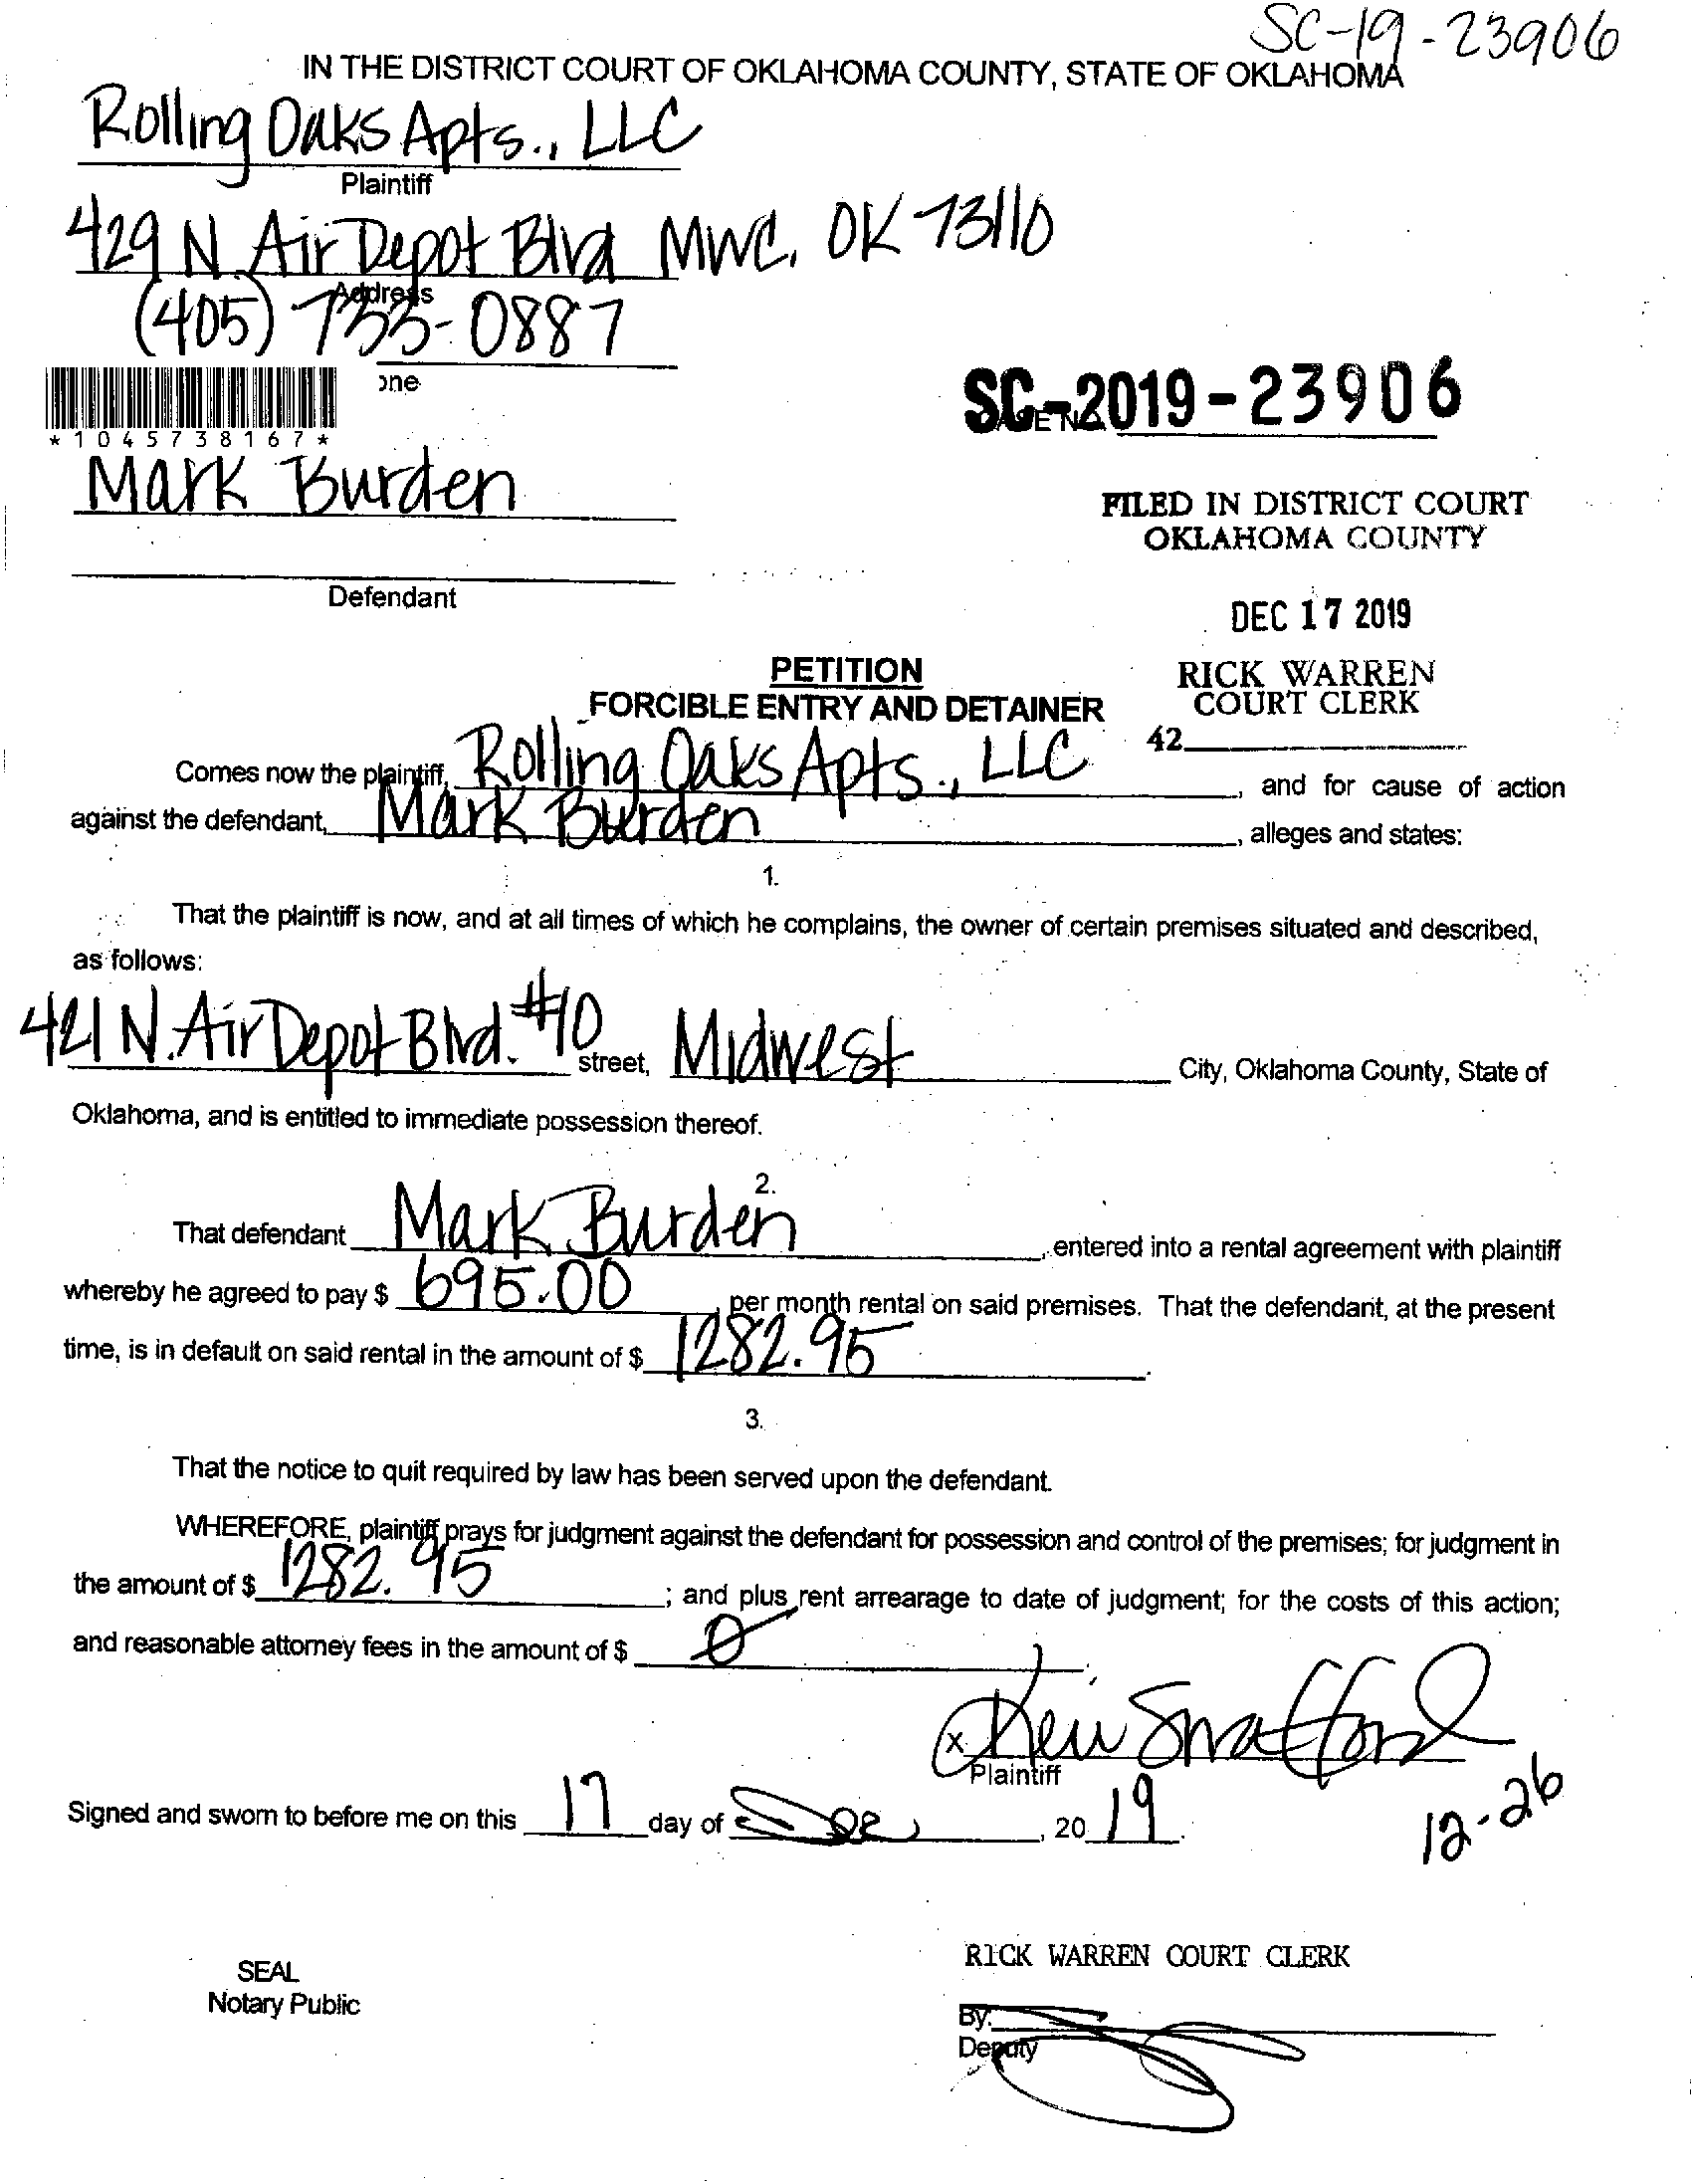 SC-19-23906
IN THE DISTRICT COURT OF OKLAHOMA COUNTY, STATE OF OKLAHOMA
Rolling Oaks Apts., LLC
Plaintiff
429 N. Air Depot Blvd MWC, OK 73110
Address
(405) 733-0887
one
SC-2019-23906
*1045738167*
Mark Burden
FILED IN DISTRICT COURT
OKLAHOMA COUNTY
Defendant
DEC 17 2019
PETITION
FORCIBLE ENTRY AND DETAINER
RICK WARREN
COURT CLERK
42
Comes now the plaintiff, Rolling Oaks Apts., LLC, and for cause of action
against the defendant, Mark Burden, alleges and states:
1.
That the plaintiff is now, and at all times of which he complains, the owner of certain premises situated and described,
as follows:
421 N. Air Depot Blvd. #10 street, Midwest City, Oklahoma County, State of
Oklahoma, and is entitled to immediate possession thereof.
2.
That defendant Mark Burden, entered into a rental agreement with plaintiff
whereby he agreed to pay $ 695.00, per month rental on said premises. That the defendant, at the present
time, is in default on said rental in the amount of $ 1282.95.
3.
That the notice to quit required by law has been served upon the defendant.
WHEREFORE, plaintiff prays for judgment against the defendant for possession and control of the premises; for judgment in
the amount of $ 1282.95; and plus rent arrearage to date of judgment; for the costs of this action;
and reasonable attorney fees in the amount of $ 0;
x
Plaintiff
Signed and sworn to before me on this 17 day of Dec, 2019.
12-26
SEAL
Notary Public
RICK WARREN COURT CLERK
By:
Deputy